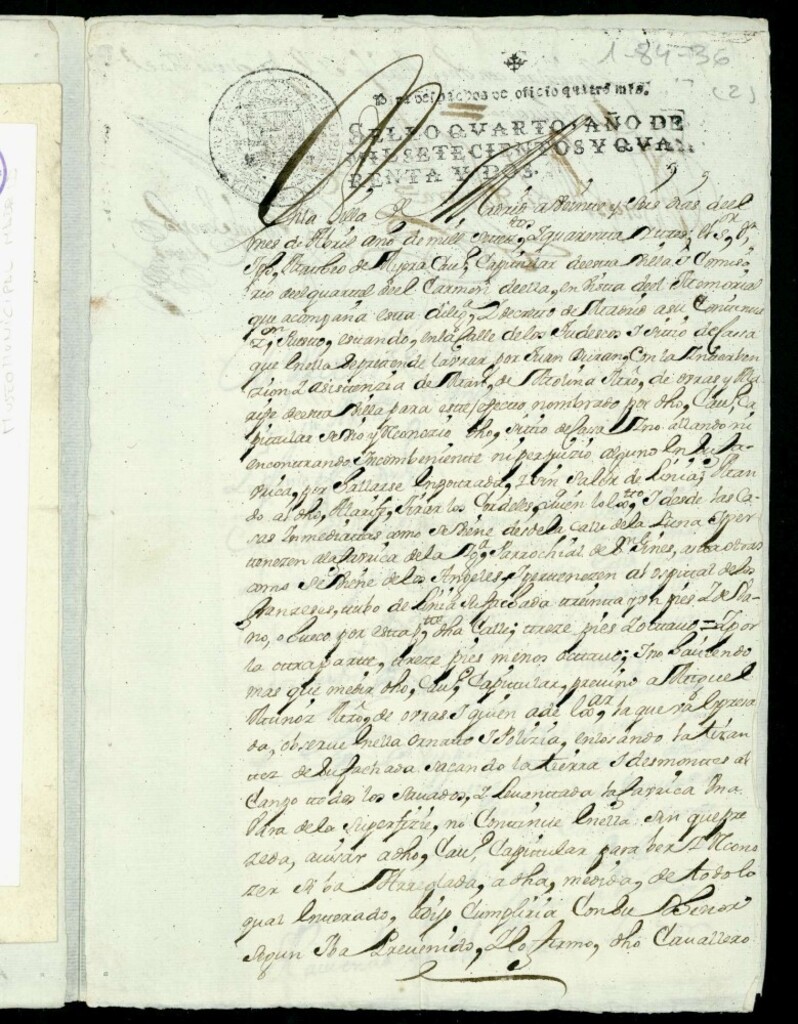 1-84-36
(2)
Para despachos de oficio quatro mrs.
SELLO QVARTO, AÑO DE
MIL SETECIENTOS Y QVA-
RENTA Y DOS.
Enla Villa de Madrid a Veinte y seis dias del
mes de Abril año de mill settos. y quarenta y dos; el Sr. Dn.
Cavo. Capitular desta Villa y Comisa
rio del quartel del Carmen della, en vista del Memorial
que acompaña esta dilig.a y decreto de Madrid a su Continua
zon. Puesto, estando, enla Calle de los Tudescos y sitio de Cassa
que enella se pretende labrar, por Juan Duran, Con la Interben
zion y asistenzia de Man.l de Molina Mro, de obras y Ala
rife desta Villa para este efecto nombrado por dho, Cavo, Ca
pitular se vio y Reconozio dho, sitio de Casa y no allando ni
encontrando Incombeniente ni perjuizio alguno en su fa
vrica, por allarse y sin Salir de Linia, Man
do al dho, Alarife, tirar los Cordeles, y desde las Ca
sas Inmediatas como se viene desde la Calle de la Luna y per
tenezen ala favrica de la Parrochial de Sn. Gines, asta otras
como se viene de los Angeles y pertenezen al ospital de los
franzeses, tubo de Linia su fachada treinta y un pies y de
o hueco por esta dha Calle, treze pies y octavo = y por
la otra parte, treze pies menos octavo; y no haviendo
mas que medir dho, Cavo, Capitular, previno a Miguel
Munoz Mro, de obras y quien a de la que va Expresa
da, observe enella ornato y Polizia, enlosando la tiran
tez de su fachada sacando la tierra y desmontes al
Canpo todos los Savados, y Levantada la favrica Una
Vara de la Superfizie, no Continue enella sin que pre
zeda, avisar a dho, Cavo, Capitular para ver y Recono
zer si ba Arreglada, a dha, medida, de todo lo
qual Enterado, Dijo Cumpliria Con su tenor
segun Va Prevenido, y lo firmo, dho Cavallero